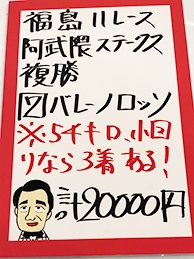 福島11レース
阿武隈ステークス
複勝
⑫バレーノロッソ
※5キロ、小回
りなら3着ある!
計20000円